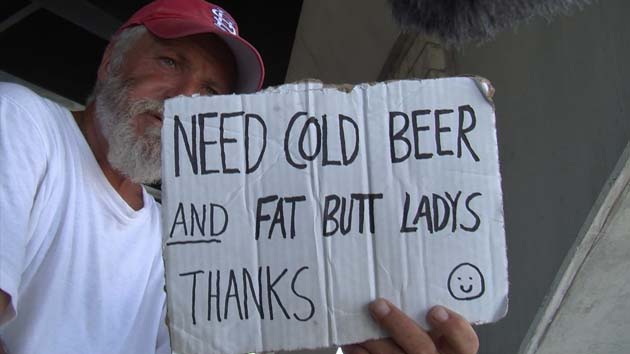 NEED COLD BEER
AND FAT BUTT LADYS
THANKS